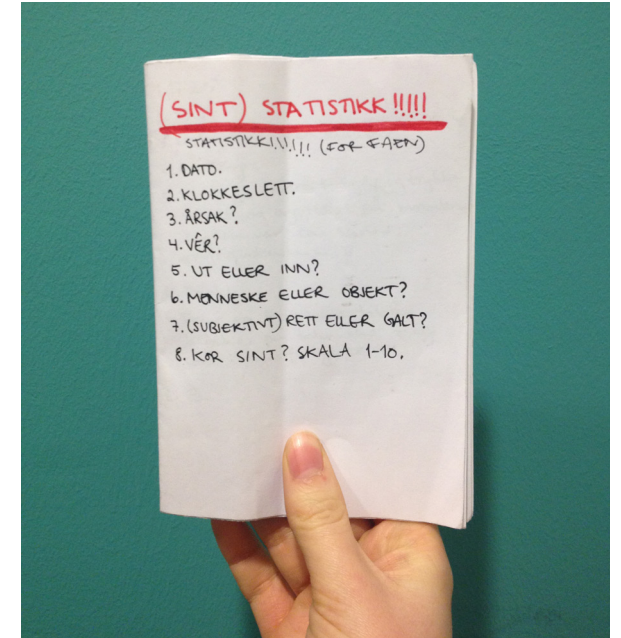 (SINT) STATISTIKK!!!!!
STATISTIKK!!!!!! (FOR FAEN)
1. DATO.
2. KLOKKESLETT.
3. ÅRSAK?
4. VÊR?
5. UT ELLER INN?
6. MENNESKE ELLER OBJEKT?
7. (SUBJEKTIVT) RETT ELLER GALT?
8. KOR SINT? SKALA 1-10.